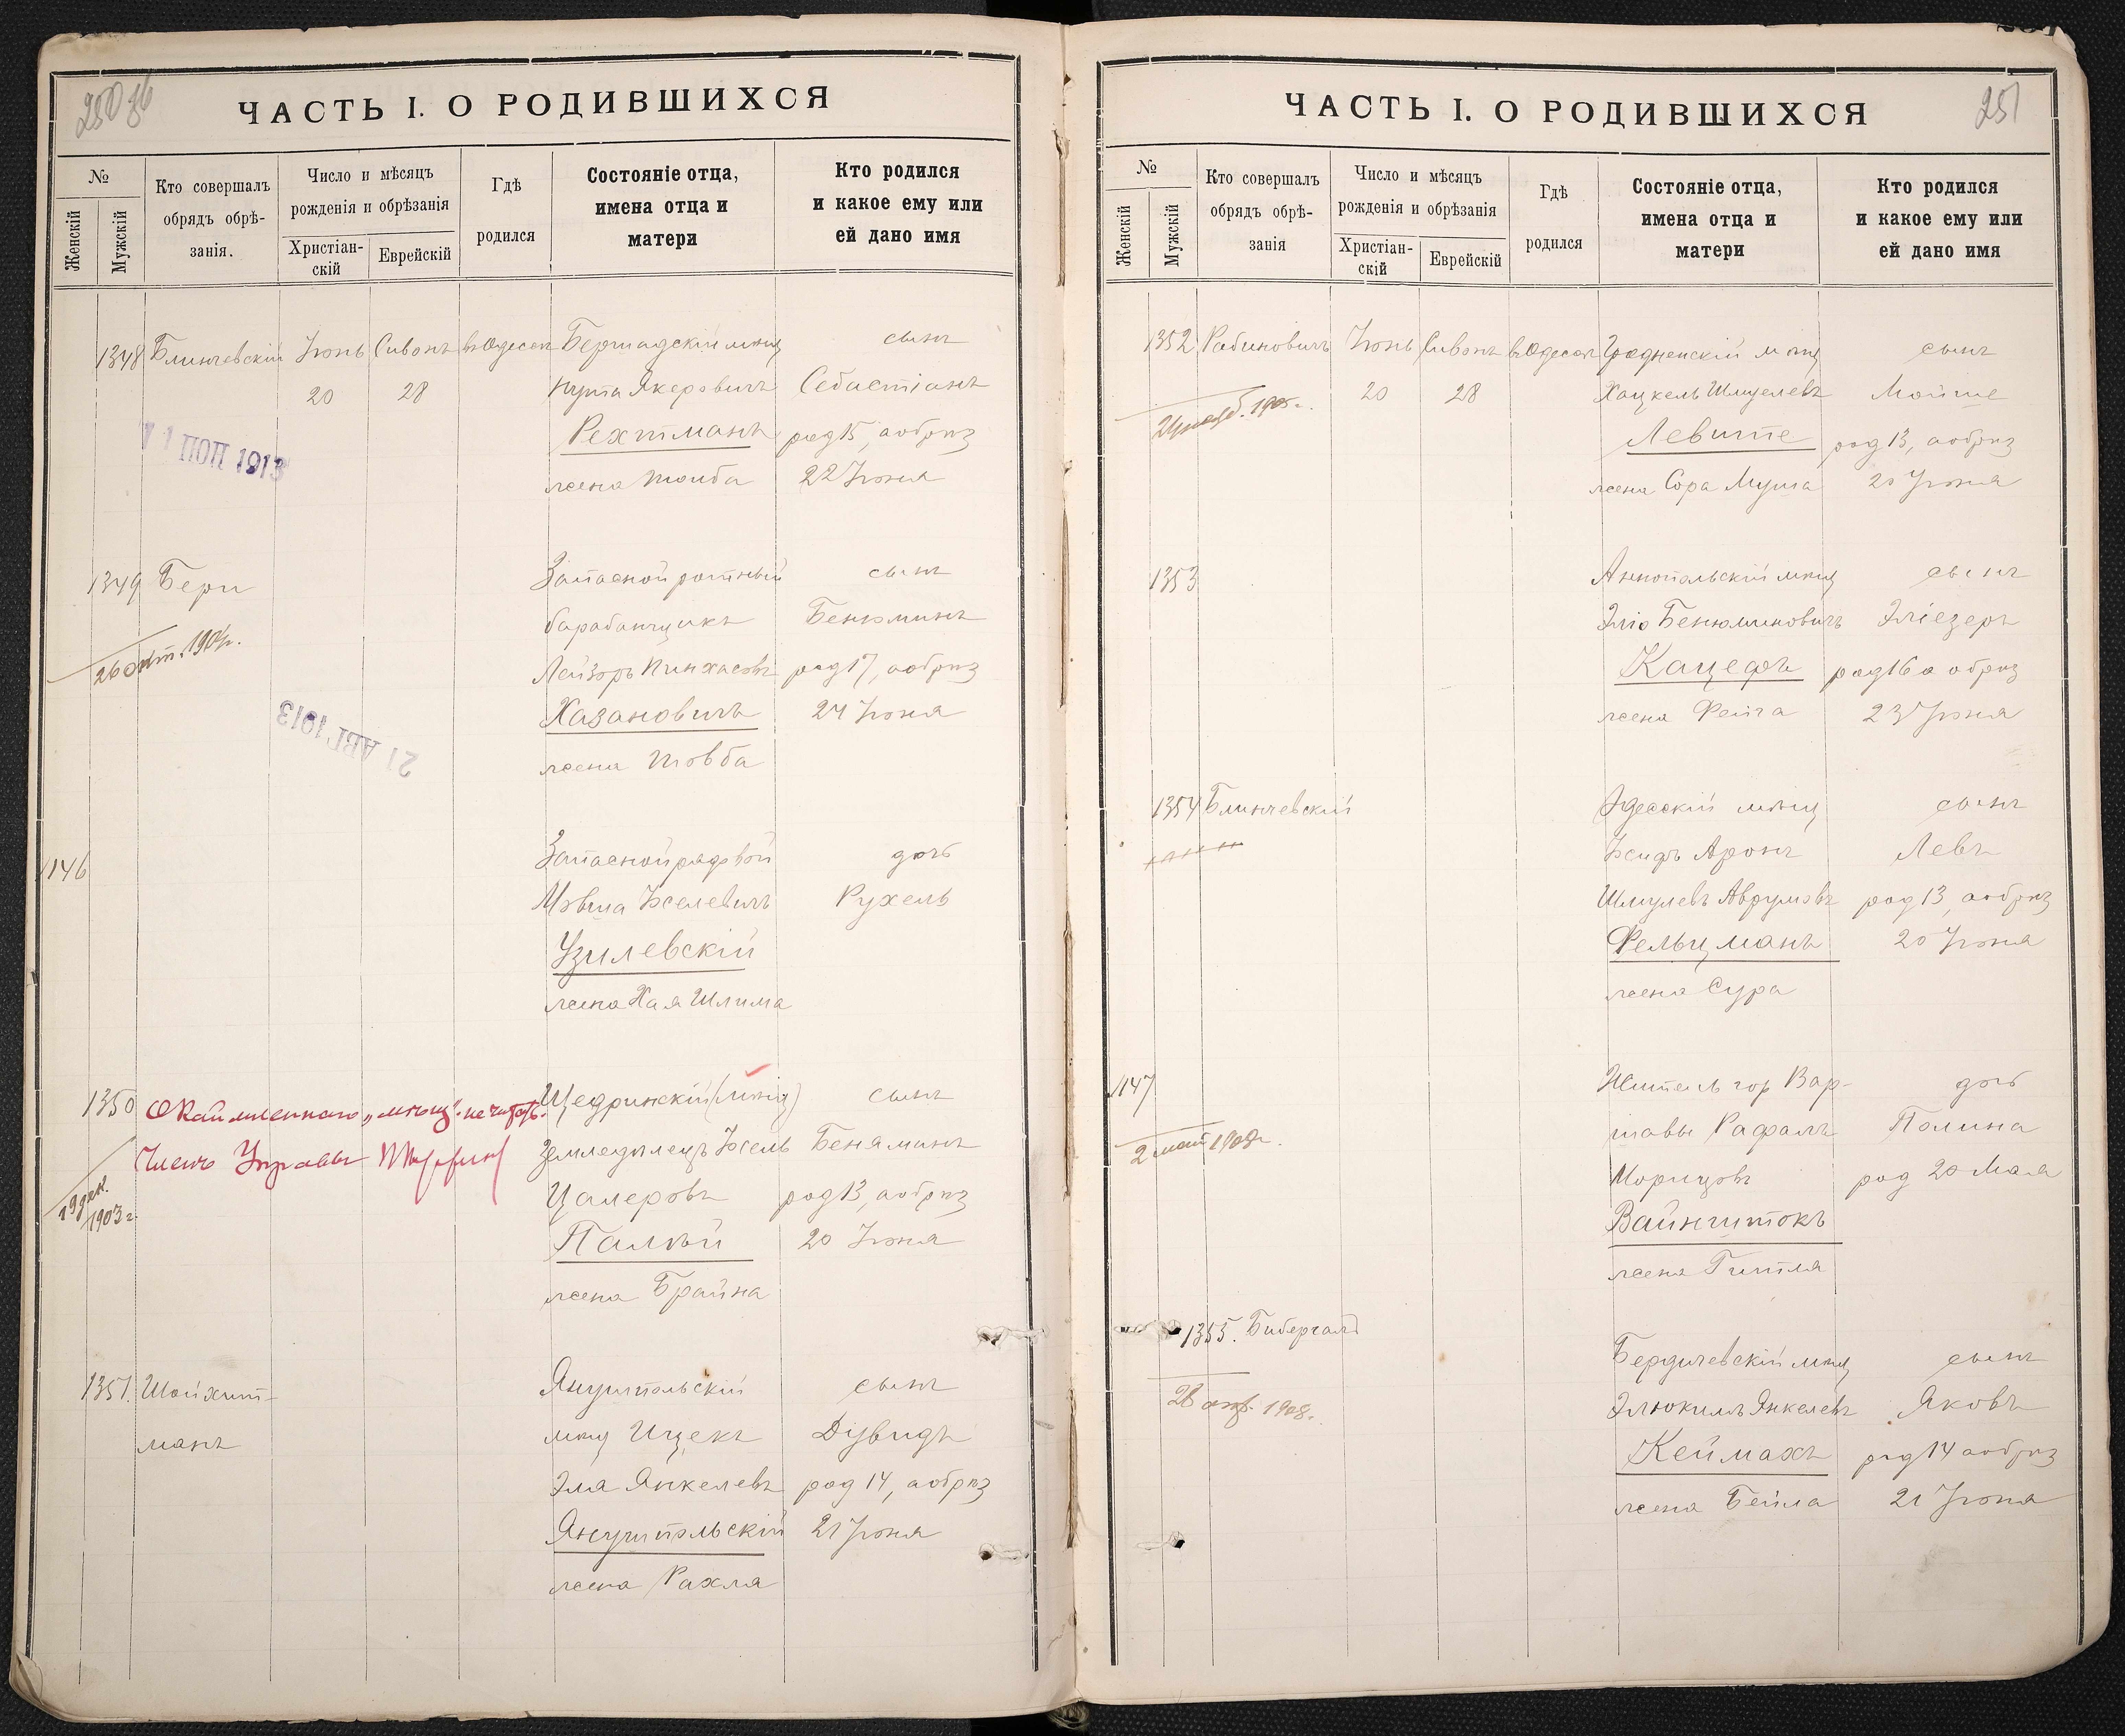 250
ЧАСТЬ I. О РОДИВШИХСЯ
№
Женскій
Мужскій
Кто совершалъ
обрядъ обрѣ-
занія.
Число и мѣсяцъ
рожденія и обрѣзанія
Христіан-
скій
Еврейскій
Гдѣ
родился
Состояніе отца,
имена отца и
матери
Кто родился
и какое ему или
ей дано имя
1348 Блинчевскій Іюнь Сивонъ въ Одессѣ Бершадскій мѣщ сынъ
20 28 Нута Якеровичъ Себастіанъ
Рехтманъ род 15, а обрѣз
жена Тойба 22 Іюня
11 ІЮН 1913
1349 Бери Запасной ротный сынъ
барабанщикъ Бенюминъ
26 окт. 1904г.
Лейзоръ Пинхасовъ род 17, а обрѣз
Хазановичъ 24 Іюня
жена Товба
21 АВГ 1913
1146 Запасной рядовой дочь
Мовша Іоселевичъ Рухель
Узилевскій
жена Хая Шлима
1350 Окаймленнаго „мѣщ" не читать. Щедринскій (мѣщ) сынъ
Членъ Управы Земледѣлецъ Іосель Беняминъ
19 дек. 1903 г.
Цалеровъ род 13, а обрѣз
Палѣй 20 Іюня
жена Брайна
1351. Шойхит- Янушпольскій сынъ
манъ мѣщ Ицекъ Дувидъ
Эля Янкелевъ род 14, а обрѣз
Янушпольскій 21 Іюня
жена Рахля
251
ЧАСТЬ I. О РОДИВШИХСЯ
№
Женскій
Мужскій
Кто совершалъ
обрядъ обрѣ-
занія
Число и мѣсяцъ
рожденія и обрѣзанія
Христіан-
скій
Еврейскій
Гдѣ
родился
Состояніе отца,
имена отца и
матери
Кто родился
и какое ему или
ей дано имя
1352 Рабиновичъ Іюнь Сивонъ въ Одессѣ Гродненскій мѣщ сынъ
20 28 Хацкель Шмулевъ Мойше
Левитте род 13, а обрѣз
жена Сора Муша 20 Іюня
1353 Аннопольскій мѣщ сынъ
Эліо Бенюминовичъ Эліезеръ
Кацефъ род 16 а обрѣз
жена Фейга 23 Іюня
1354 Блинчевскій Одесскій мѣщ сынъ
Іосифъ Аронъ Левъ
Шмулевъ Аврумовъ род 13, а обрѣз
Фельцманъ 20 Іюня
жена Сура
1147 Житель гор Вар- дочь
2 мая 1908г. шавы Рафалъ Полина
Морицовъ род 20 Мая
Вайнштокъ
жена Гитля
1355. Бибергалъ Бердичевскій мѣщ сынъ
28 апр. 1908г. Элюкимъ Янкелевъ Яковъ
Кеймахъ род 14 а обрѣз
жена Бейла 21 Іюня